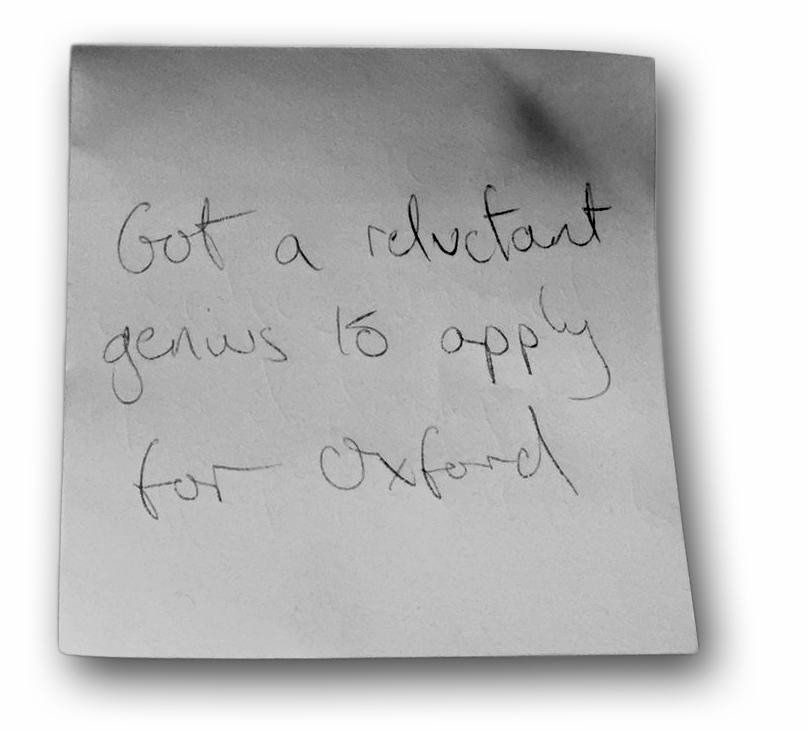 Got a reluctant
genius to apply
for Oxford